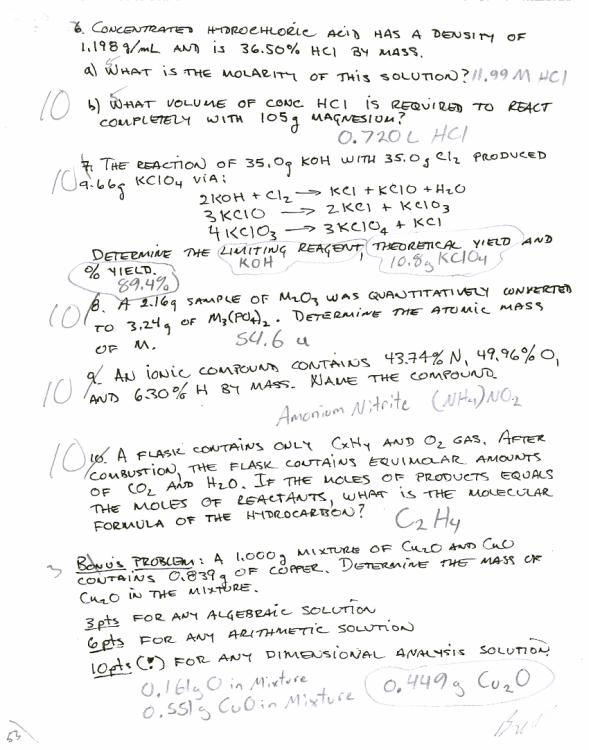 6. CONCENTRATED HYDROCHLORIC ACID HAS A DENSITY OF
1.198 g/mL AND IS 36.50% HCl BY MASS.
a) WHAT IS THE MOLARITY OF THIS SOLUTION? 11.99 M HCl
10 b) WHAT VOLUME OF CONC HCl IS REQUIRED TO REACT
COMPLETELY WITH 105g MAGNESIUM?
0.720 L HCl
10 7. THE REACTION OF 35.0g KOH WITH 35.0g Cl2 PRODUCED
9.66g KClO4 VIA:
2KOH + Cl2 → KCl + KClO + H2O
3KClO → 2KCl + KClO3
4KClO3 → 3KClO4 + KCl
DETERMINE THE LIMITING REAGENT, THEORETICAL YIELD AND
KOH 10.8g KClO4
% YIELD.
89.4%
10 8. A 2.16g SAMPLE OF M2O3 WAS QUANTITATIVELY CONVERTED
TO 3.24g OF M3(PO4)2. DETERMINE THE ATOMIC MASS
OF M. 54.6 u
10 9. AN IONIC COMPOUND CONTAINS 43.74% N, 49.96% O,
AND 6.30% H BY MASS. NAME THE COMPOUND.
Amonium Nitrite (NH4)NO2
10 10. A FLASK CONTAINS ONLY CxHy AND O2 GAS. AFTER
COMBUSTION, THE FLASK CONTAINS EQUIMOLAR AMOUNTS
OF CO2 AND H2O. IF THE MOLES OF PRODUCTS EQUALS
THE MOLES OF REACTANTS, WHAT IS THE MOLECULAR
FORMULA OF THE HYDROCARBON? C2H4
3 BONUS PROBLEM: A 1.000g MIXTURE OF Cu2O AND CuO
CONTAINS 0.839g OF COPPER. DETERMINE THE MASS OF
Cu2O IN THE MIXTURE.
3pts FOR ANY ALGEBRAIC SOLUTION
6pts FOR ANY ARITHMETIC SOLUTION
10pts (!) FOR ANY DIMENSIONAL ANALYSIS SOLUTION
0.161g O in Mixture
0.551g CuO in Mixture
0.449g Cu2O
53